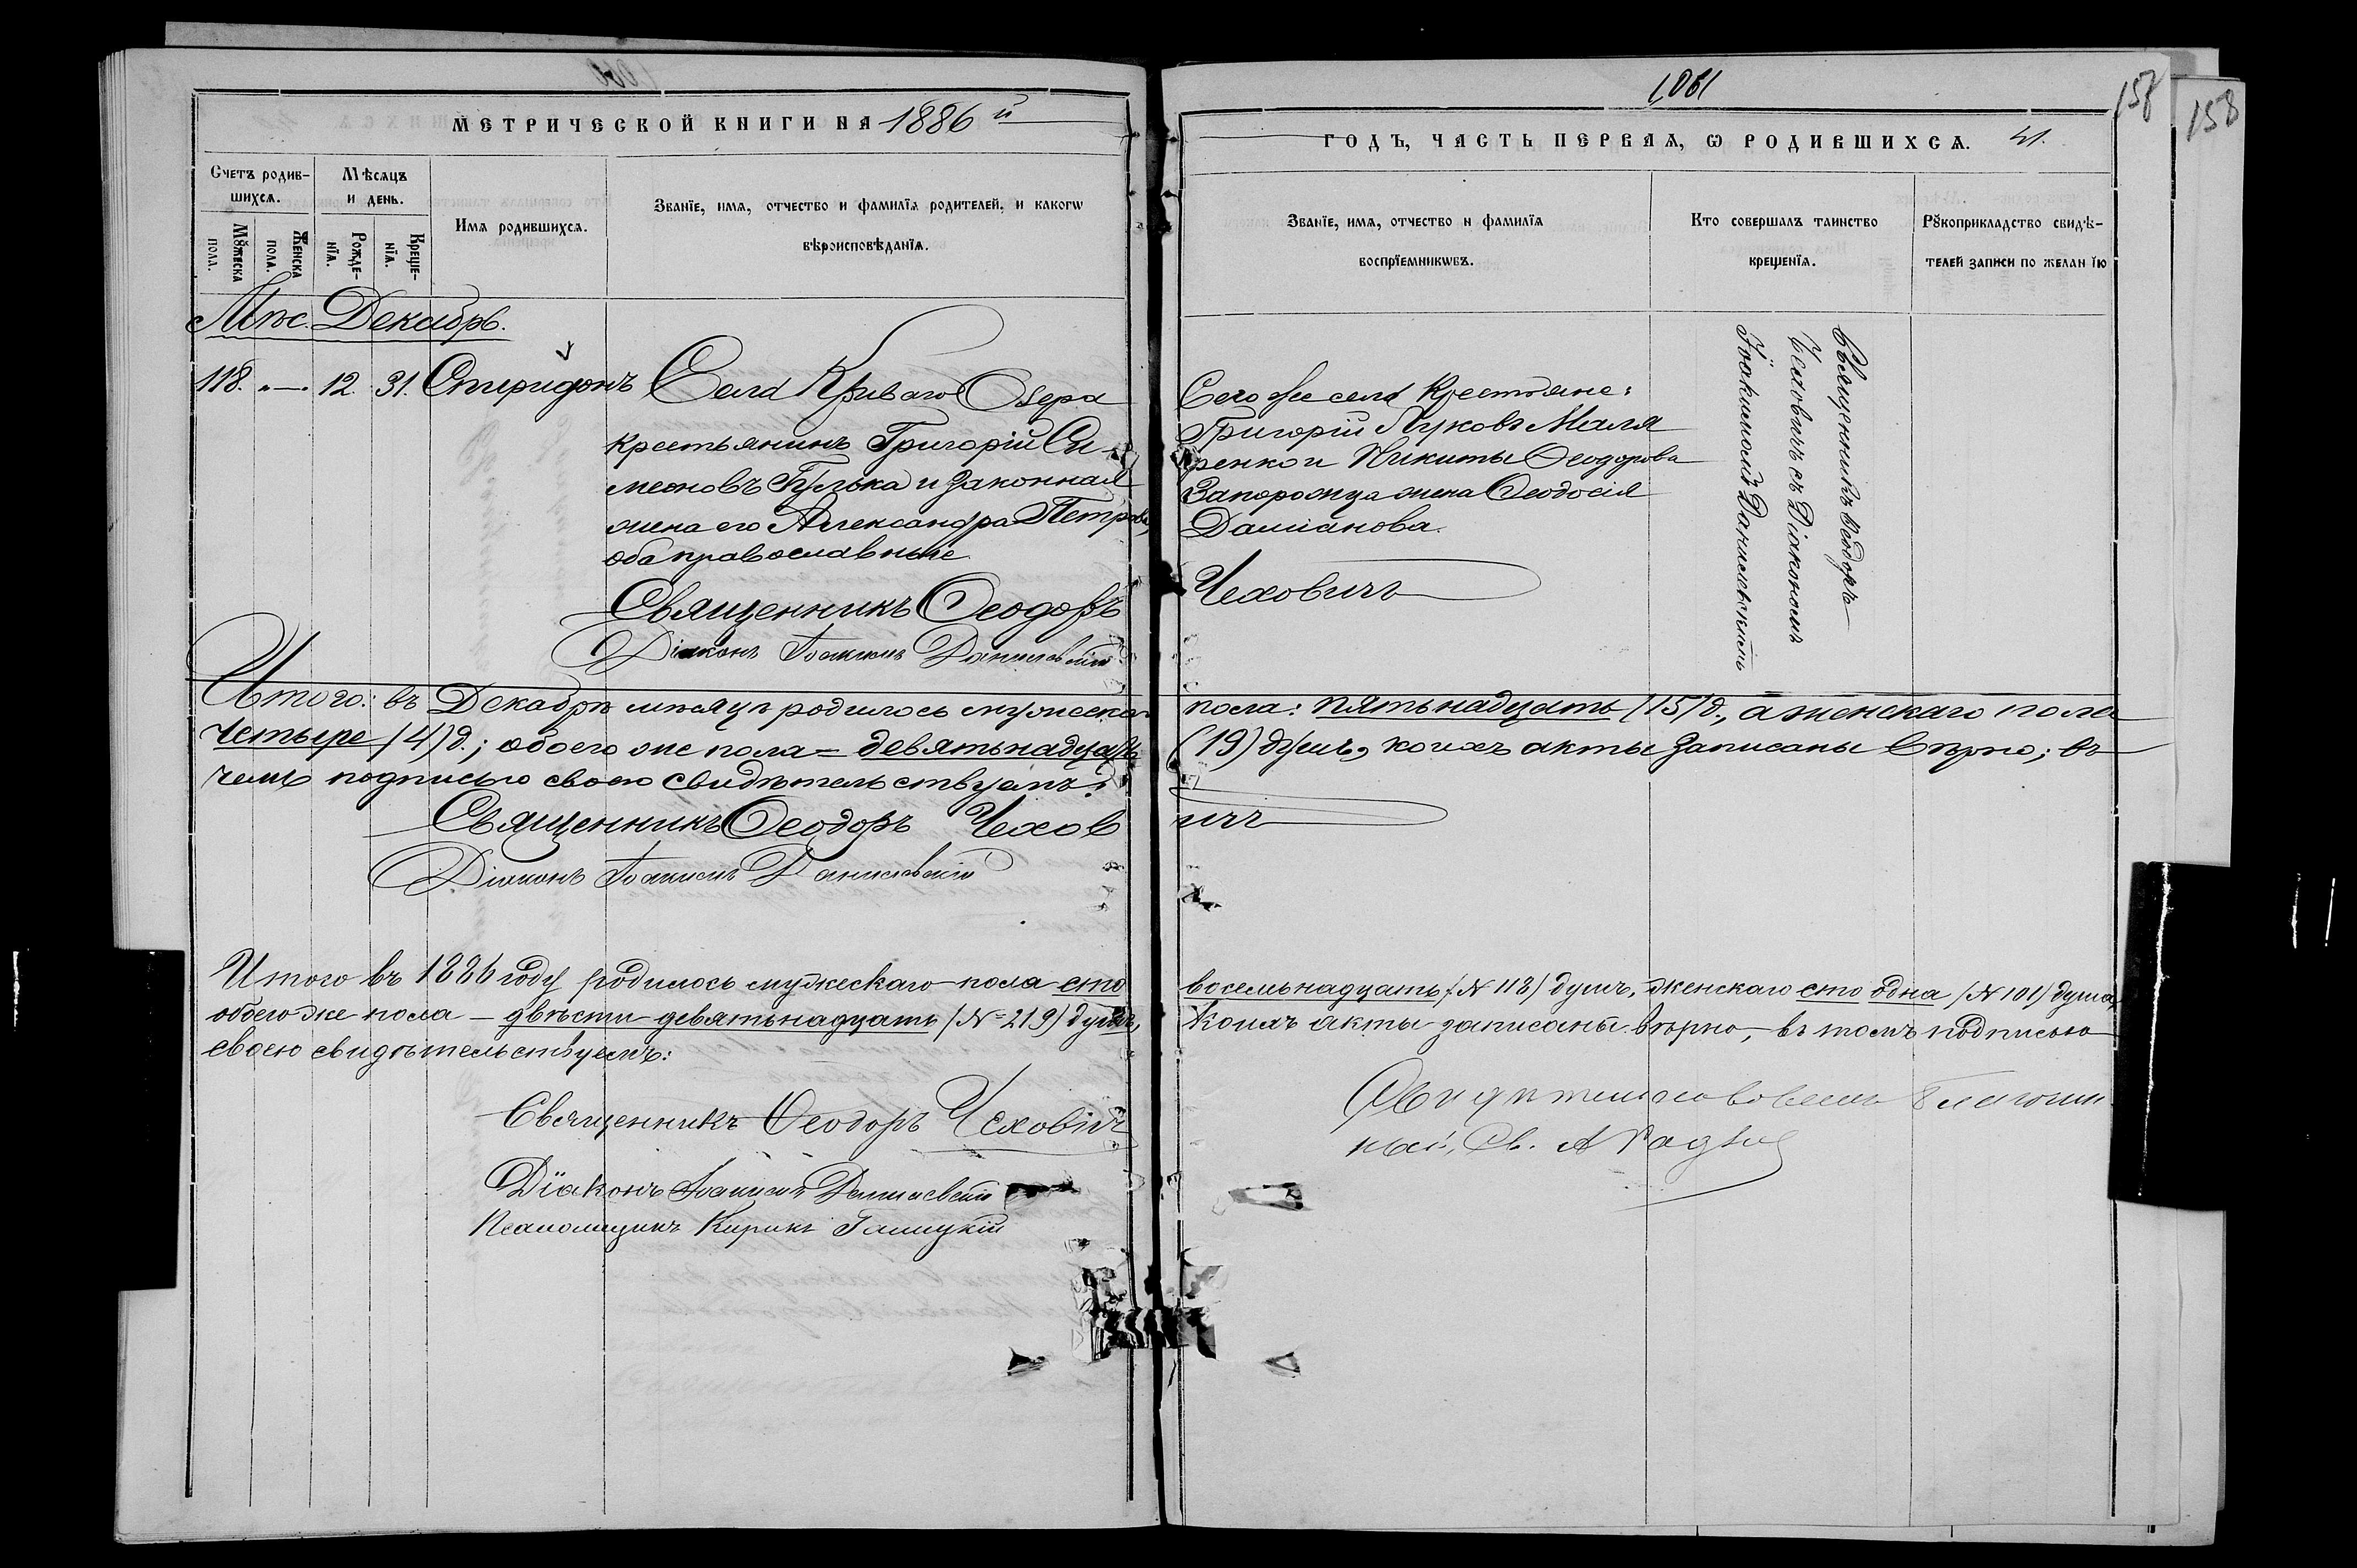 1061
158
158
МЕТРИЧЕСКОЙ КНИГИ НА 1886 й
ГОДЪ, ЧАСТЬ ПЕРВАѦ, Ѡ РОДИВШИХСѦ. 41.
Счетъ родив-
шихсѧ.
Мꙋжеска
пола.
Женска
пола.
Мѣсѧцъ
и день.
Рожде-
нїѧ.
Креще-
нїѧ.
Имѧ родившихсѧ.
Званїе, имѧ, отчество и фамилїѧ родителей, и какогѡ
вѣроисповѣданїѧ.
Званїе, имѧ, отчество и фамилїѧ
воспрїемникѡвъ.
Кто совершалъ таинство
крещенїѧ.
Рꙋкоприкладство свидѣ-
телей записи по желанїю
Мѣс. Декабрь.
118. „ — . 12. 31. Спиридонъ
Села Криваго Озера
крестьянинъ Григорій Си-
меоновъ Гулька и законная
жена его Александра Петрова,
оба православные
Священникъ Ѳеодоръ
Діаконъ Іоакимъ Данилевскій
Сего же села крестьяне:
Григорій Луковъ Маля
ренко и Никиты Ѳеодорова
Запорожца жена Ѳеодосія
Даміанова.
Чеховичъ
Священникъ Ѳеодоръ
Чеховичъ съ Діакономъ
Іоакимомъ Данилевскимъ
Итого: въ Декабрѣ мѣсяцѣ родилось мужеска пола: пятьнадцать (15) д., а женскаго пола
четыре (4) д.; обоего же пола = девятьнадцать (19) душъ, коихъ акты записаны вѣрно; въ
чемъ подписью своею свидѣтельствуемъ:
Священникъ Ѳеодоръ Чеховичъ
Діаконъ Іоакимъ Данилевскій
Итого въ 1886 году родилось мужескаго пола сто восемьнадцать (№ 118) душъ, женскаго сто одна (№ 101) душа,
обоего же пола — двѣсти девятьнадцать (№ 219) душъ, коихъ акты записаны вѣрно, — въ томъ подписью
своею свидѣтельствуемъ:
Священникъ Ѳеодоръ Чеховичъ
Діаконъ Іоакимъ Данилевскій
Псаломщикъ Кирикъ Галицкій
Благочин
ный, Св. А